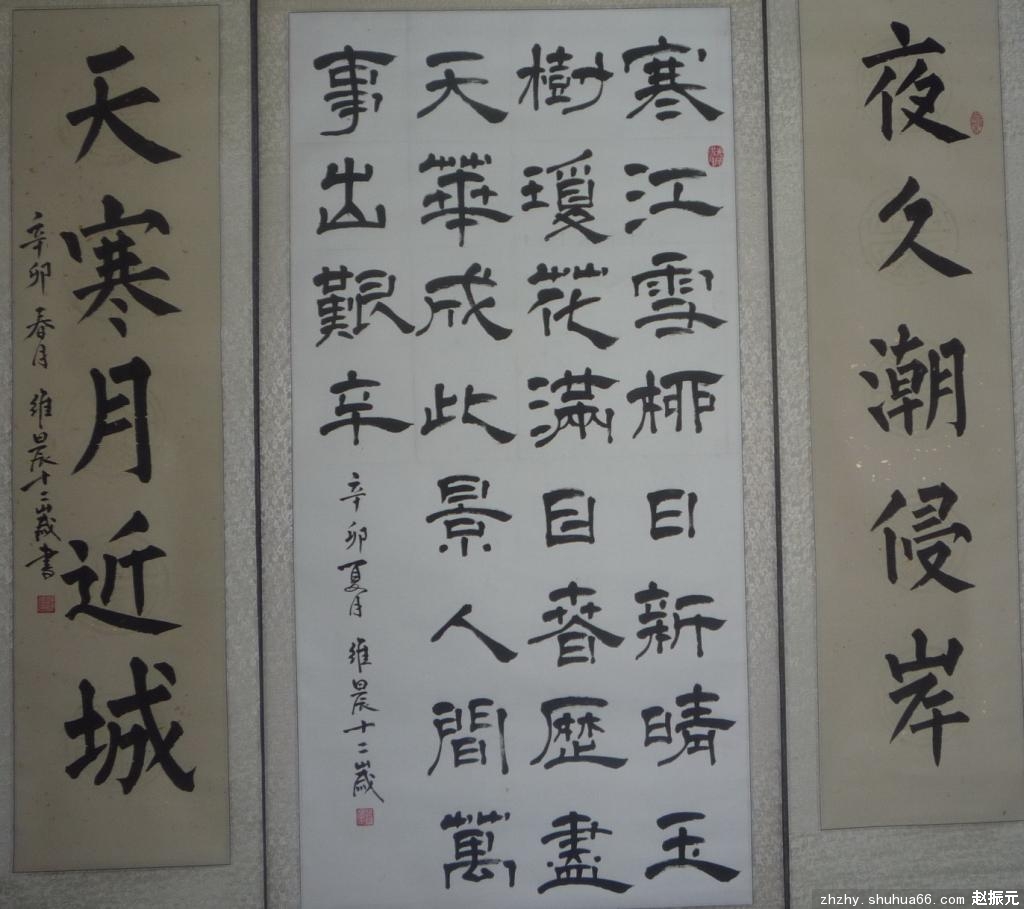 夜久潮侵岸
寒江雪柳日新晴玉
樹瓊花滿目春歷盡
天華成此景人間萬
事出艱辛 辛卯夏月 維晨十二歲
天寒月近城
辛卯春月 維晨十二歲書
zhzhy.shuhua66.com 赵振元